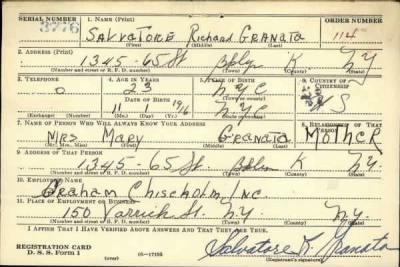 SERIAL NUMBER 1. NAME (Print) ORDER NUMBER
3776 SALVATORE Richard GRANATA 114
(First) (Middle) (Last)
2. ADDRESS (Print)
1345-65 St Bklyn K. NY
(Number and street or R. F. D. number) (Town) (County) (State)
3. TELEPHONE 4. AGE IN YEARS 5. PLACE OF BIRTH 6. COUNTRY OF CITIZENSHIP
0 23 NYC
DATE OF BIRTH (Town or county)
11 1 1916 NY U S
(Exchange) (Number) (Mo.) (Day) (Yr.) (State or country)
7. NAME OF PERSON WHO WILL ALWAYS KNOW YOUR ADDRESS 8. RELATIONSHIP OF THAT PERSON
MRS. MARY GRANATA MOTHER
(Mr., Mrs., Miss) (First) (Middle) (Last)
9. ADDRESS OF THAT PERSON
1345-65 St Bklyn K NY.
(Number and street or R. F. D. number) (Town) (County) (State)
10. EMPLOYER'S NAME
Graham Chisholm, Inc.
11. PLACE OF EMPLOYMENT OR BUSINESS
150 Varrick St. N.Y. N.Y.
(Number and street or R. F. D. number) (Town) (County) (State)
I AFFIRM THAT I HAVE VERIFIED ABOVE ANSWERS AND THAT THEY ARE TRUE.
REGISTRATION CARD
D. S. S. Form 1 Salvatore R. Granata
(over) (Registrant's signature)